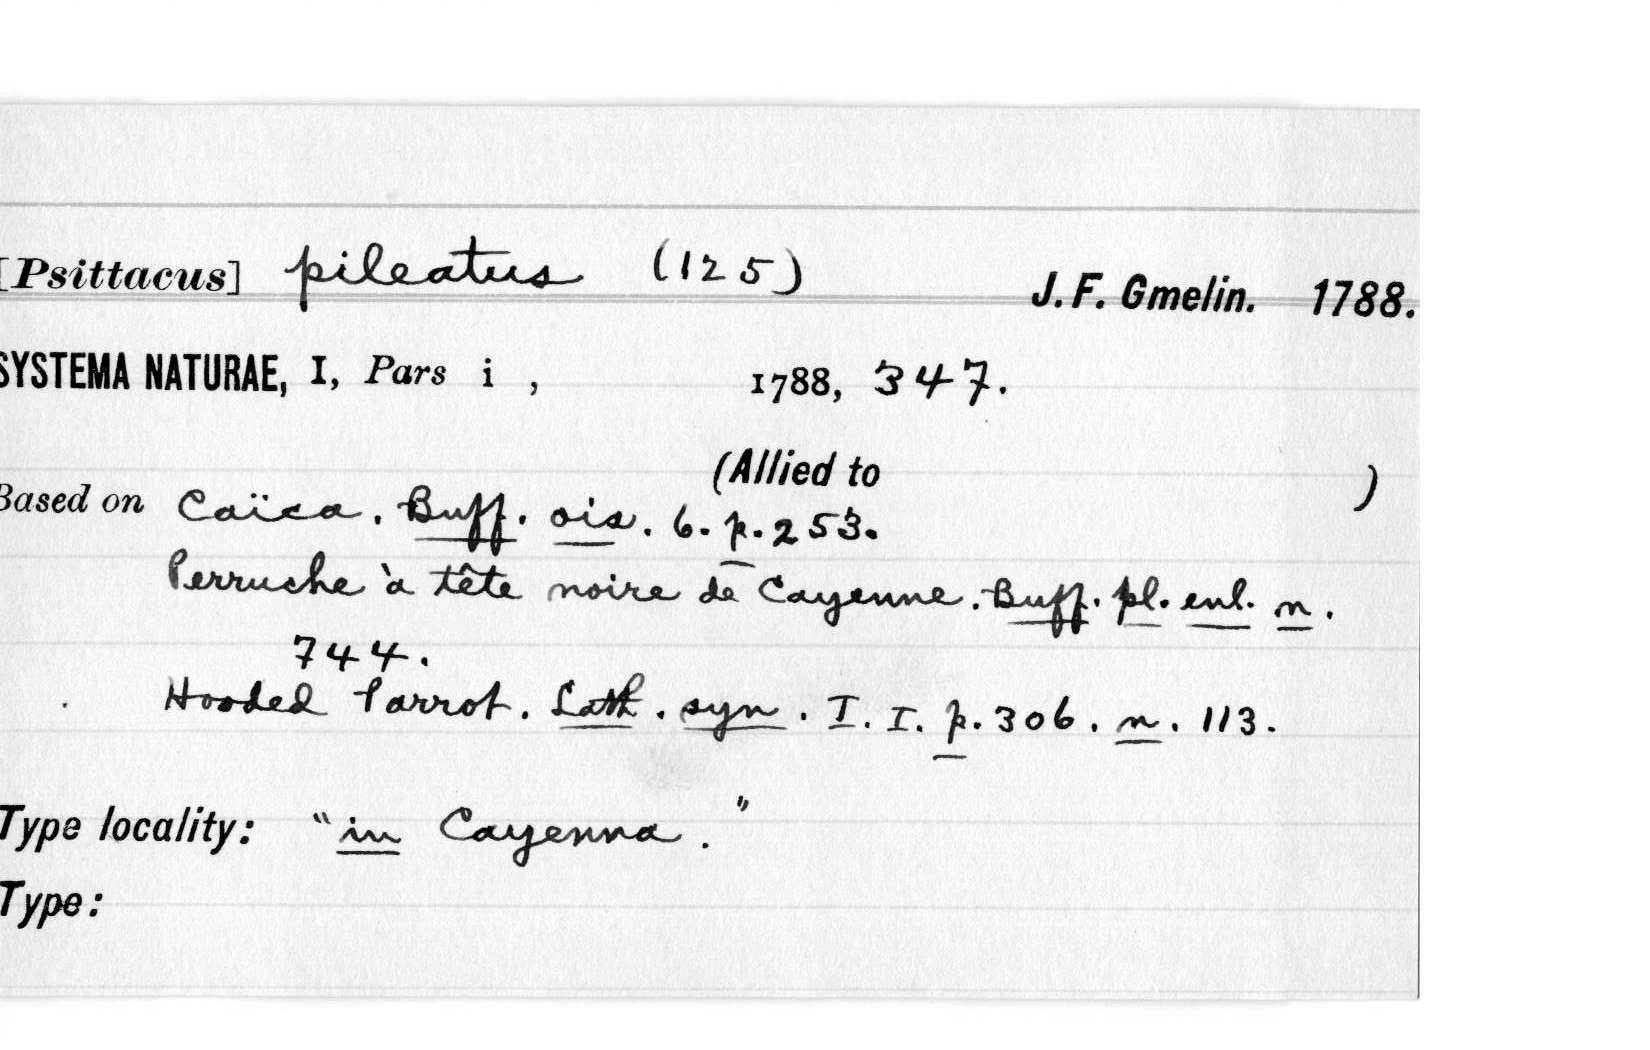 [Psittacus] pileatus (125) J. F. Gmelin. 1788.
SYSTEMA NATURAE, I, Pars i , 1788, 347.
(Allied to )
Based on Caïca. Buff. ois. 6. p. 253.
Perruche à tête noire de Cayenne. Buff. pl. enl. n.
744.
Hooded Parrot. Lath. syn. I. I. p. 306. n. 113.
Type locality: "in Cayenna."
Type: